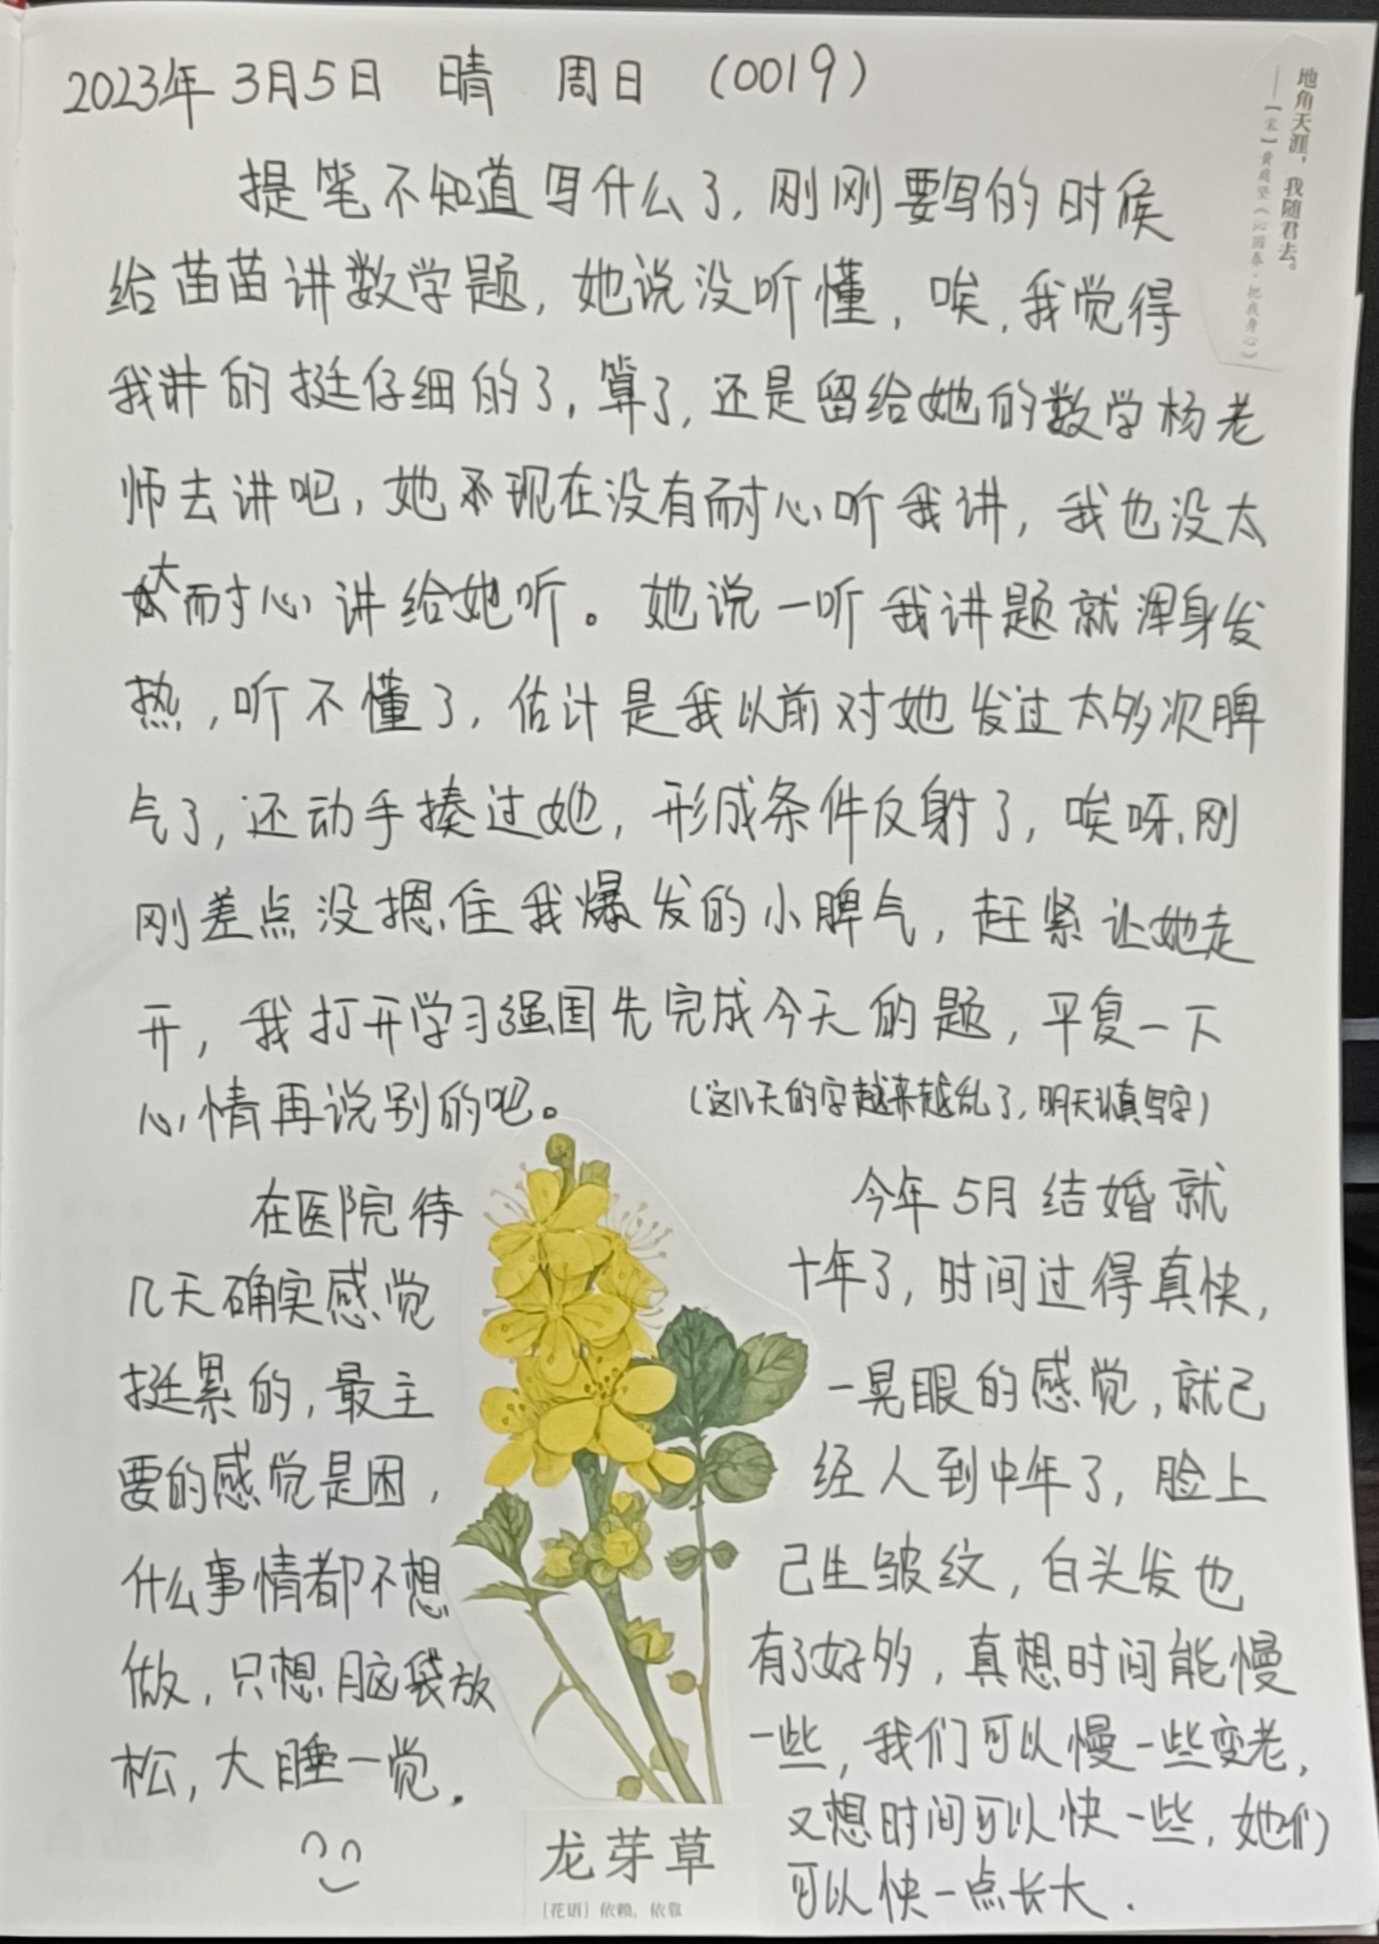 2023年3月5日 晴 周日 (0019)
地角天涯，我随君去。
——【宋】黄庭坚《沁园春·把我身心》
提笔不知道写什么了,刚刚要写的时候
给苗苗讲数学题,她说没听懂,唉,我觉得
我讲的挺仔细的了,算了,还是留给她的数学杨老
师去讲吧,她不现在没有耐心听我讲,我也没太
大耐心讲给她听。她说一听我讲题就浑身发
热,听不懂了,估计是我以前对她发过太多次脾
气了,还动手揍过她,形成条件反射了,唉呀,刚
刚差点没摁住我爆发的小脾气,赶紧让她走
开,我打开学习强国先完成今天的题,平复一下
心情再说别的吧。
(这几天的字越来越乱了,明天认真写字)
在医院待
几天确实感觉
挺累的,最主
要的感觉是困,
什么事情都不想
做,只想脑袋放
松,大睡一觉.
今年5月结婚就
十年了,时间过得真快,
一晃眼的感觉,就已
经人到中年了,脸上
已生皱纹,白头发也
有了好多,真想时间能慢
一些,我们可以慢一些变老,
又想时间可以快一些,她们
可以快一点长大.
龙芽草
[花语] 依赖，依靠